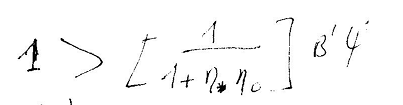 1 > [ 1 / (1 + η* η₀) ] B' ψ'